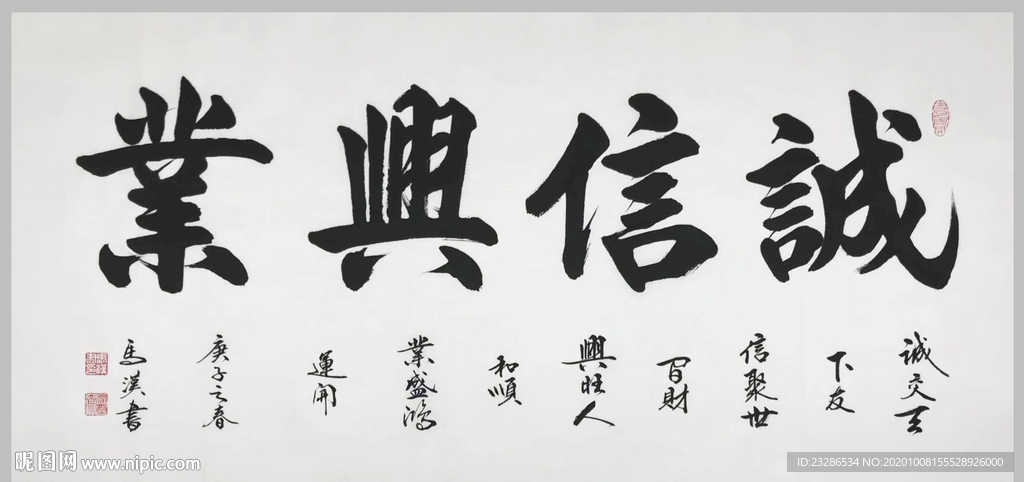 誠信興業
誠交天
下友
信聚世
間財
興旺人
和順
業盛鴻
運開
庚子之春
馬漢書
昵图网 www.nipic.com
ID:23286534 NO:20201008155528926000